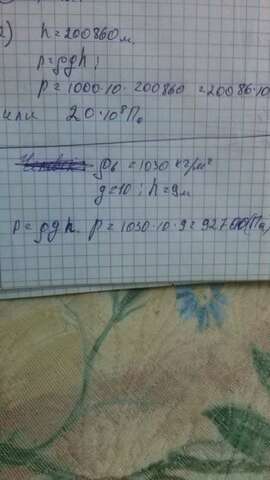 2) h = 200860 м.
p = ρgh ;
p = 1000·10·200860 = 20086·10
или 20·10⁸ Па
ρв = 1030 кг/м³
g = 10 ; h = 9м
p = ρgh. p = 1030·10·9 = 92700 (Па)